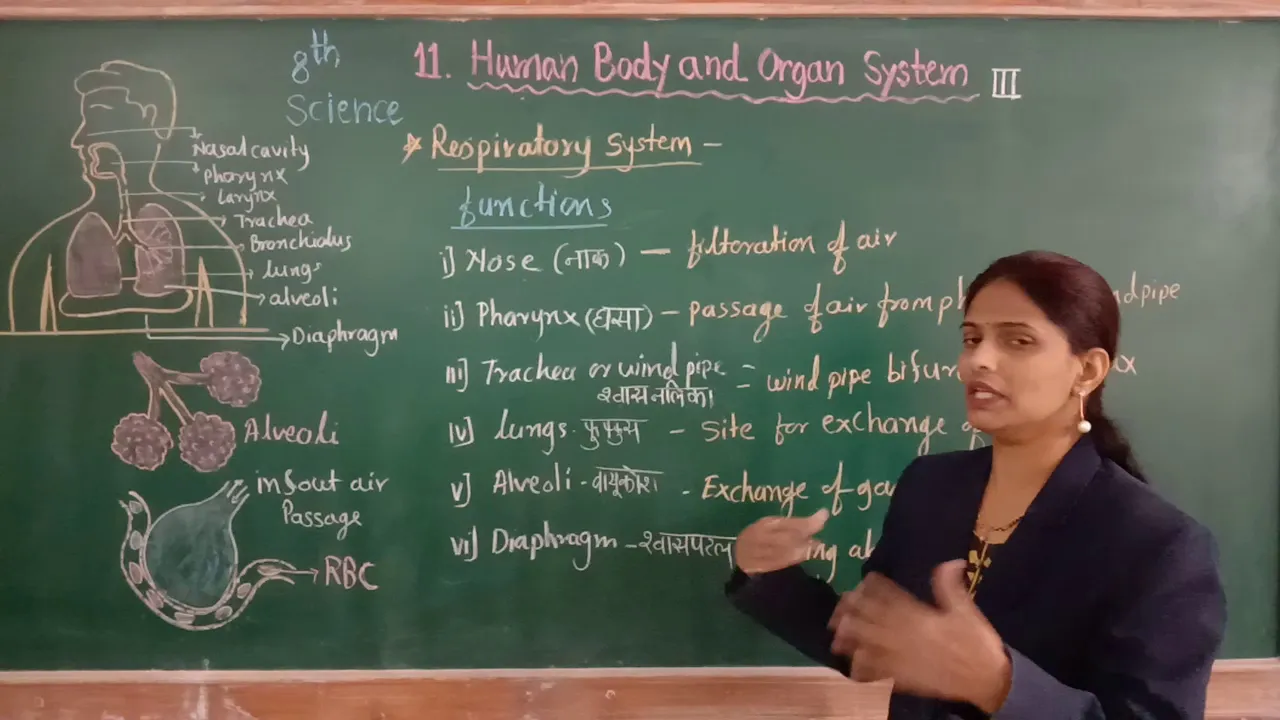 8th
Science
11. Human Body and Organ System III
* Respiratory System –
functions
i] Nose (नाक) – filteration of air
ii] Pharynx (घसा) – passage of air from ndpipe
iii] Trachea or wind pipe = wind pipe
श्वासनलिका
iv] Lungs - फुफ्फुस – Site for exchange
v] Alveoli - वायूकोश - Exchange of
vi] Diaphragm – श्वासपटल
Nasal cavity
Pharynx
Larynx
Trachea
Bronchiolus
lungs
alveoli
Diaphragm
Alveoli
in & out air
Passage
RBC